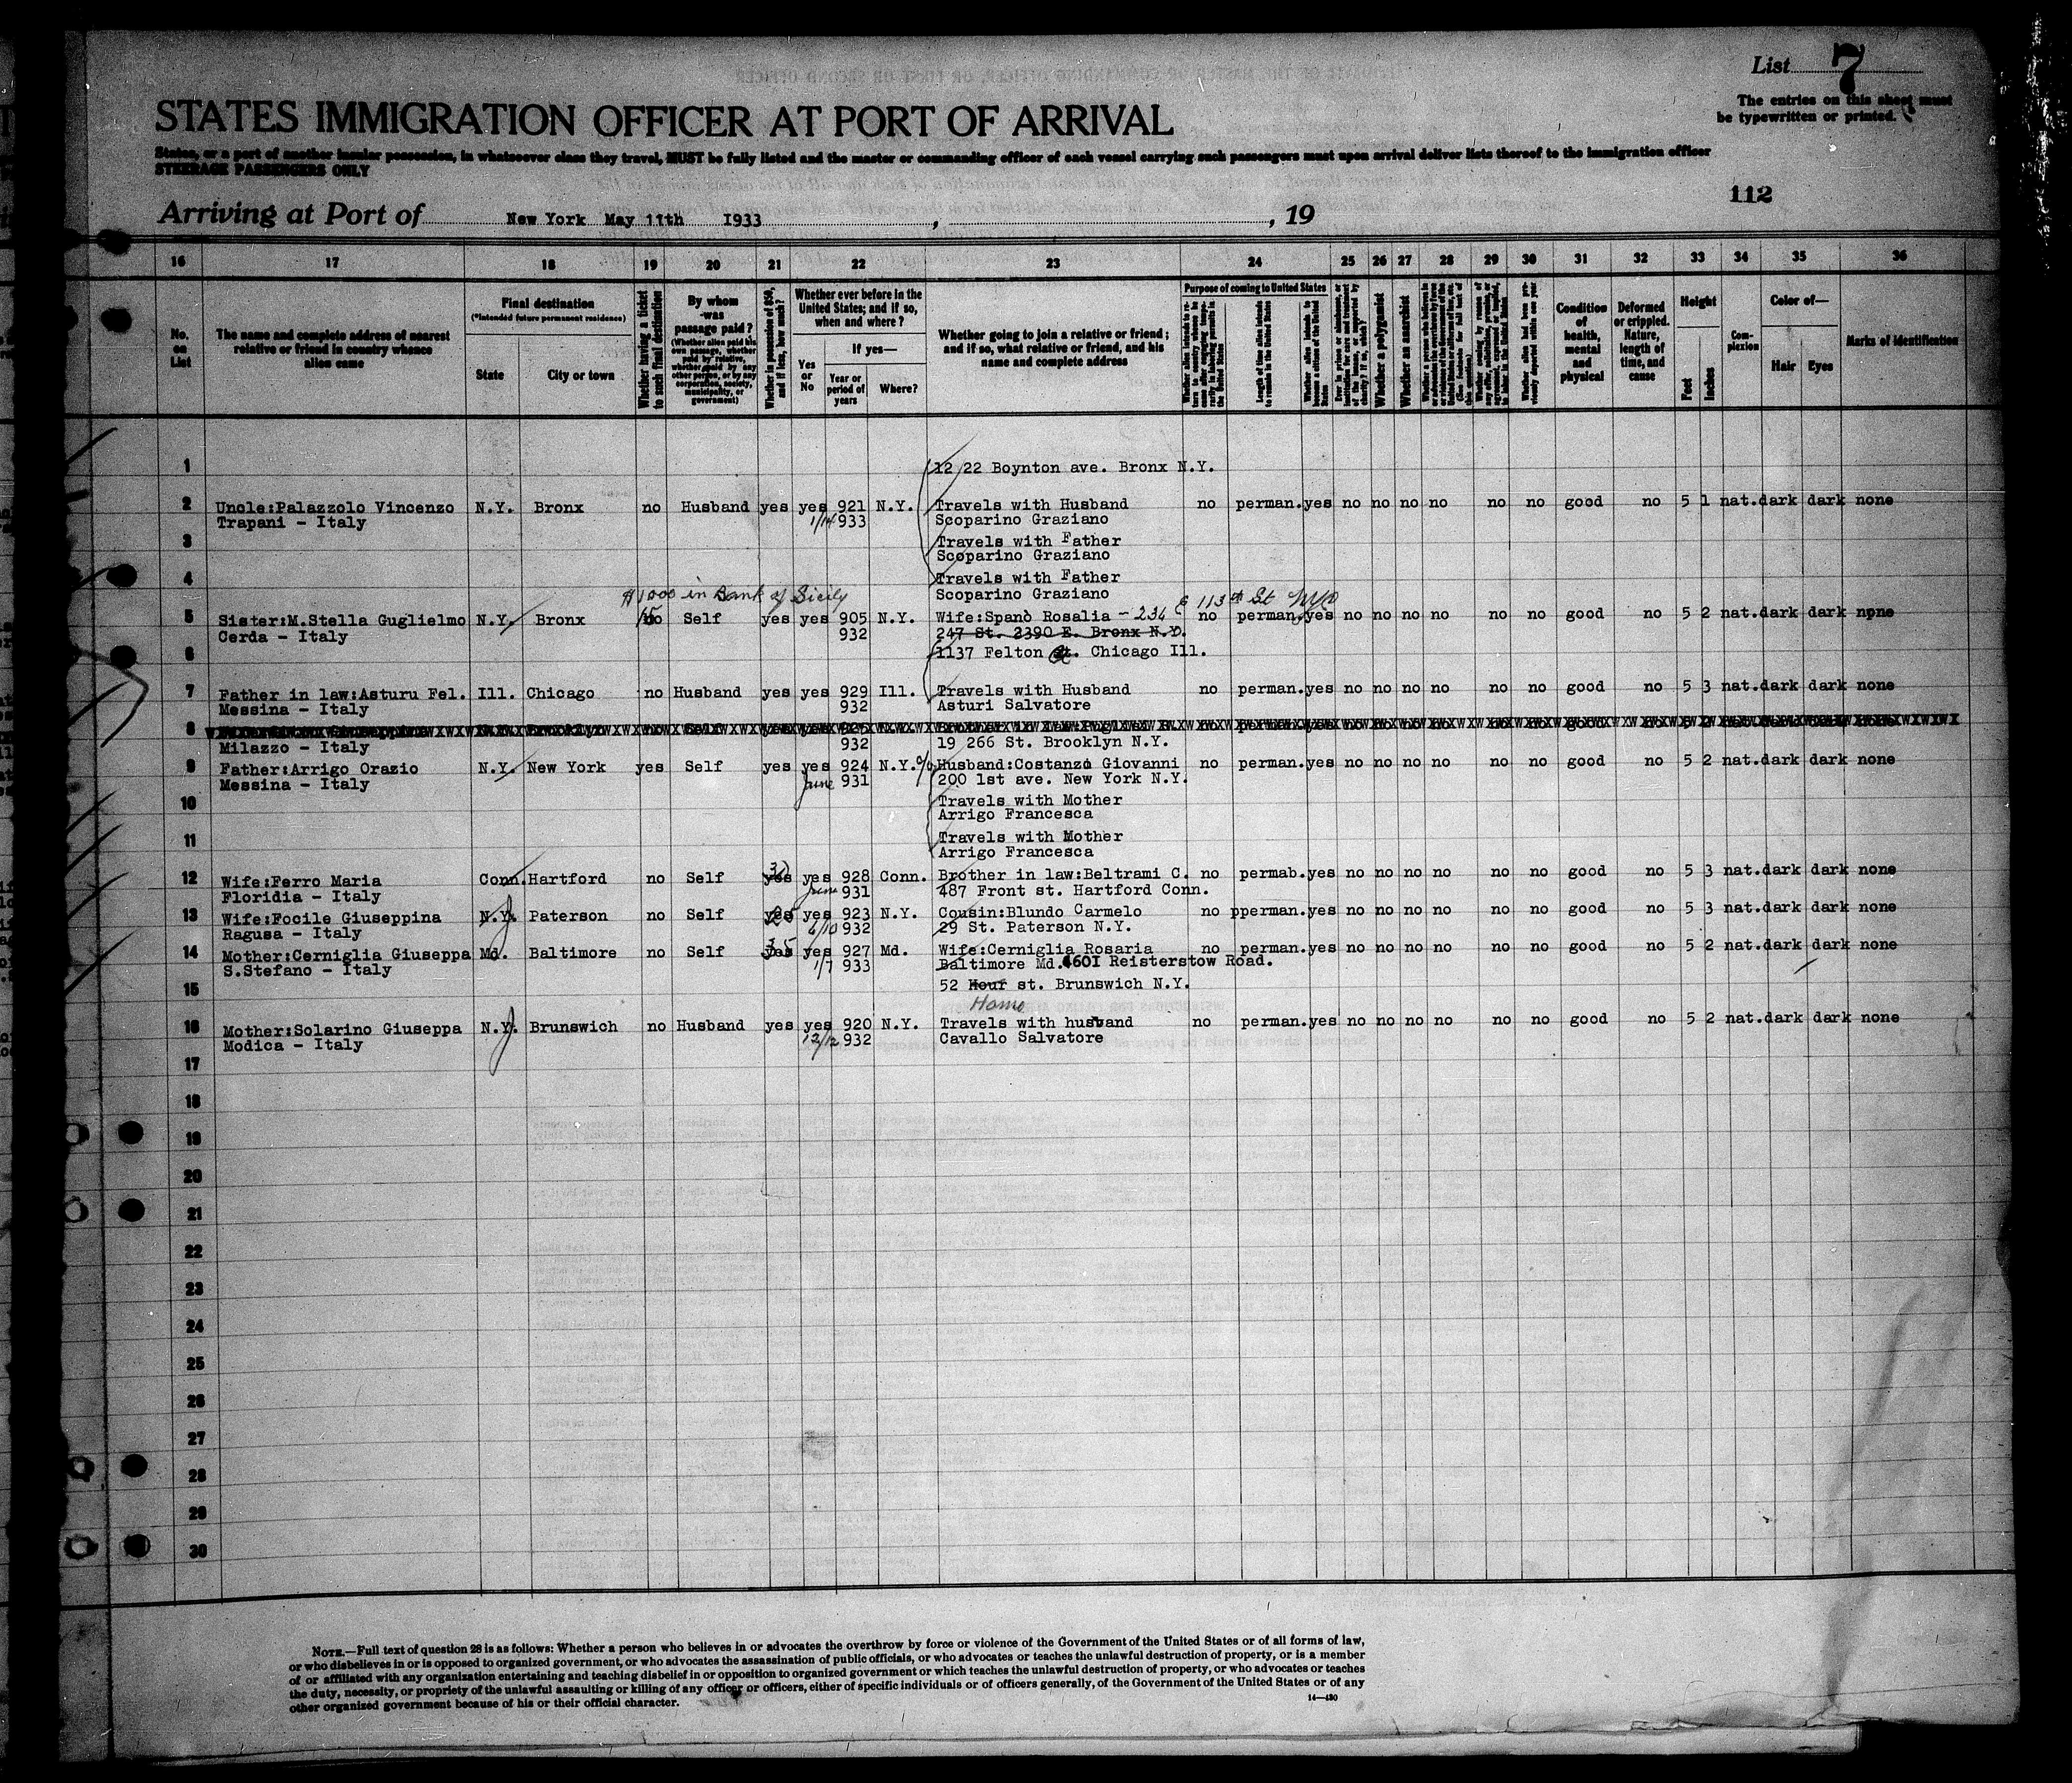 List 7
The entries on this sheet must
be typewritten or printed.
STATES IMMIGRATION OFFICER AT PORT OF ARRIVAL
States, or a port of another insular possession, in whatsoever class they travel, MUST be fully listed and the master or commanding officer of each vessel carrying such passengers must upon arrival deliver lists thereof to the immigration officer
STEERAGE PASSENGERS ONLY
112
Arriving at Port of New York May 11th 1933 , , 19
16 17 18 19 20 21 22 23 24 25 26 27 28 29 30 31 32 33 34 35 36
No. on List
The name and complete address of nearest relative or friend in country whence alien came
Final destination
(*Intended future permanent residence)
State
City or town
Whether having a ticket to such final destination
By whom was passage paid?
(Whether alien paid his own passage, whether paid by relative, whether paid by any other person, or by any corporation, society, municipality, or government)
Whether in possession of $50, and if less, how much?
Whether ever before in the United States; and if so, when and where?
Yes or No
If yes—
Year or period of years
Where?
Whether going to join a relative or friend; and if so, what relative or friend, and his name and complete address
Purpose of coming to United States
Length of time alien intends to remain in the United States
Whether alien intends to become a citizen of the United States
Whether a polygamist
Whether an anarchist
Condition of health, mental and physical
Deformed or crippled. Nature, length of time, and cause
Height
Feet
Inches
Complexion
Color of—
Hair
Eyes
Marks of identification
1 12 22 Boynton ave. Bronx N.Y.
2 Uncle:Palazzolo Vincenzo N.Y. Bronx no Husband yes yes 921 N.Y. Travels with Husband no perman. yes no no no no no no good no 5 1 nat. dark dark none
Trapani - Italy 933 Scoparino Graziano
3 Travels with Father
Scoparino Graziano
4 Travels with Father
Scoparino Graziano
$1000 in Bank of Sicily
E 113th St NYC
5 Sister:M.Stella Guglielmo N.Y. Bronx no Self yes yes 905 N.Y. Wife:Spanò Rosalia - 234 no perman. yes no no no no no no good no 5 2 nat. dark dark none
Cerda - Italy 932 247 St. 2390 E. Bronx N.Y.
6 1137 Felton Chicago Ill.
7 Father in law:Asturu Fel. Ill. Chicago no Husband yes yes 929 Ill. Travels with Husband no perman. yes no no no no no no good no 5 3 nat. dark dark none
Messina - Italy 932 Asturi Salvatore
8
Milazzo - Italy 932 19 266 St. Brooklyn N.Y.
9 Father:Arrigo Orazio N.Y. New York yes Self yes yes 924 N.Y. c/o Husband:Costanzo Giovanni no perman. yes no no no no no no good no 5 2 nat. dark dark none
Messina - Italy June 931 200 1st ave. New York N.Y.
10 Travels with Mother
Arrigo Francesca
11 Travels with Mother
Arrigo Francesca
12 Wife:Ferro Maria Conn. Hartford no Self yes yes 928 Conn. Brother in law:Beltrami C. no permab. yes no no no no no no good no 5 3 nat. dark dark none
Floridia - Italy June 931 487 Front st. Hartford Conn.
13 Wife:Focile Giuseppina N.Y. Paterson no Self yes yes 923 N.Y. Cousin:Blundo Carmelo no pperman. yes no no no no no no good no 5 3 nat. dark dark none
Ragusa - Italy 6/10 932 29 St. Paterson N.Y.
14 Mother:Cerniglia Giuseppa Md. Baltimore no Self yes 35 yes 927 Md. Wife:Cerniglia Rosaria no perman. yes no no no no no no good no 5 2 nat. dark dark none
S.Stefano - Italy 1/7 933 Baltimore Md. 4601 Reisterstow Road.
15 52 Hour st. Brunswick N.Y.
Home
16 Mother:Solarino Giuseppa N.Y. Brunswich no Husband yes yes 920 N.Y. Travels with husband no perman. yes no no no no no no good no 5 2 nat. dark dark none
Modica - Italy 12/12 932 Cavallo Salvatore
17
18
19
20
21
22
23
24
25
26
27
28
29
30
NOTE.—Full text of question 28 is as follows: Whether a person who believes in or advocates the overthrow by force or violence of the Government of the United States or of all forms of law,
or who disbelieves in or is opposed to organized government, or who advocates the assassination of public officials, or who advocates or teaches the unlawful destruction of property, or is a member
of or affiliated with any organization entertaining and teaching disbelief in or opposition to organized government or which teaches the unlawful destruction of property, or who advocates or teaches
the duty, necessity, or propriety of the unlawful assaulting or killing of any officer or officers, either of specific individuals or of officers generally, of the Government of the United States or of any
other organized government because of his or their official character.
14—480